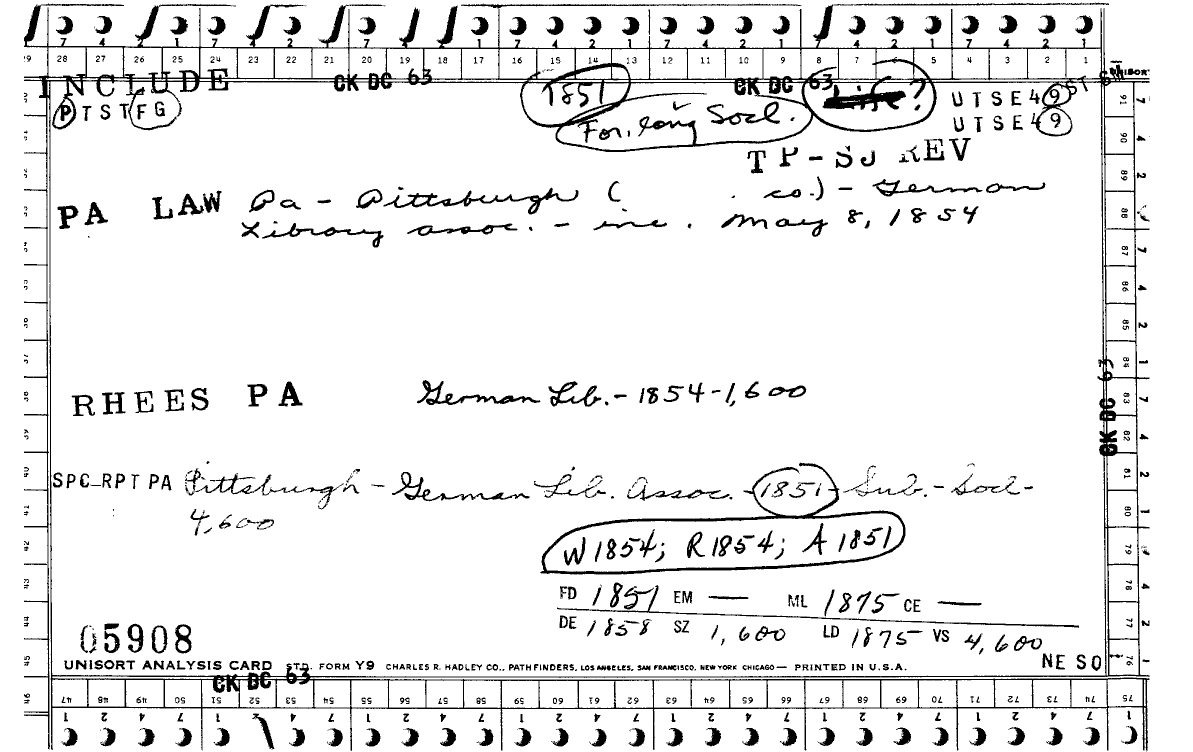 7 4 2 1 7 4 2 1 7 4 2 1 7 4 2 1 7 4 2 1 7 4 2 1
28 27 26 25 24 23 22 21 20 19 18 17 16 15 14 13 12 11 10 9 8 7 6 5 4 3 2 1
INCLUDE CK DC 63 T851 CK DC 63
PTSTFG For. lang Socl. ? UTSE49
UTSE49
TP-SJ REV
PA LAW Pa - Pittsburgh ( co.) - German
Library assoc. - inc. May 8, 1854
RHEES PA German Lib. - 1854 - 1,600
CK DC 63
SPC-RPT PA Pittsburgh - German Lib. Assoc. - 1851 - Sub. - Socl -
4,600
W 1854; R 1854; A 1851
FD 1851 EM — ML 1875 CE —
DE 1858 SZ 1,600 LD 1875 VS 4,600
05908
NE SO
UNISORT ANALYSIS CARD STD. FORM Y9 CHARLES R. HADLEY CO., PATHFINDERS, LOS ANGELES, SAN FRANCISCO, NEW YORK CHICAGO — PRINTED IN U.S.A.
CK DC 63
47 48 49 50 51 52 53 54 55 56 57 58 59 60 61 62 63 64 65 66 67 68 69 70 71 72 73 74 75